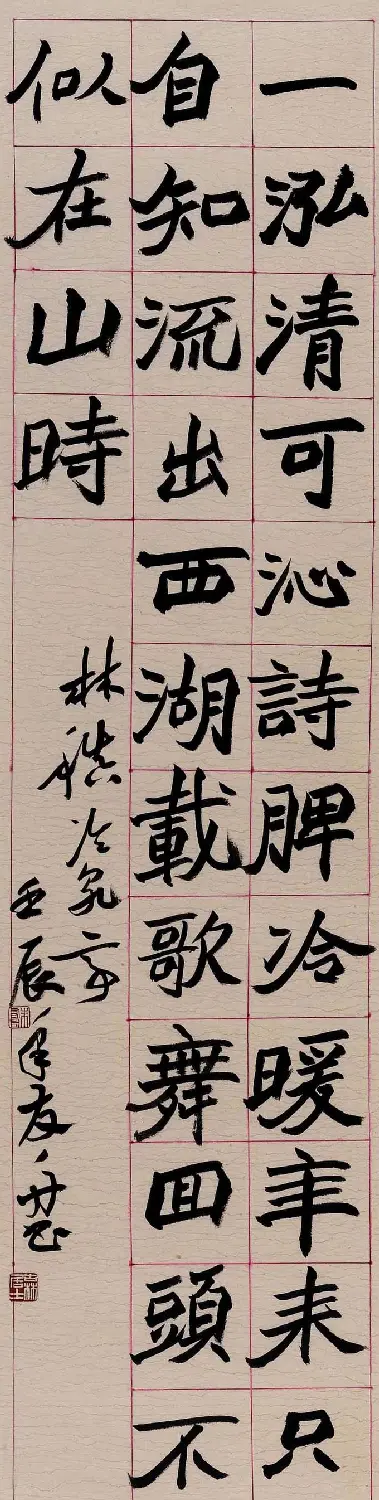 一泓清可沁詩脾冷暖年来只
自知流出西湖載歌舞回頭不
似在山時
林稹冷泉亭
壬辰年友